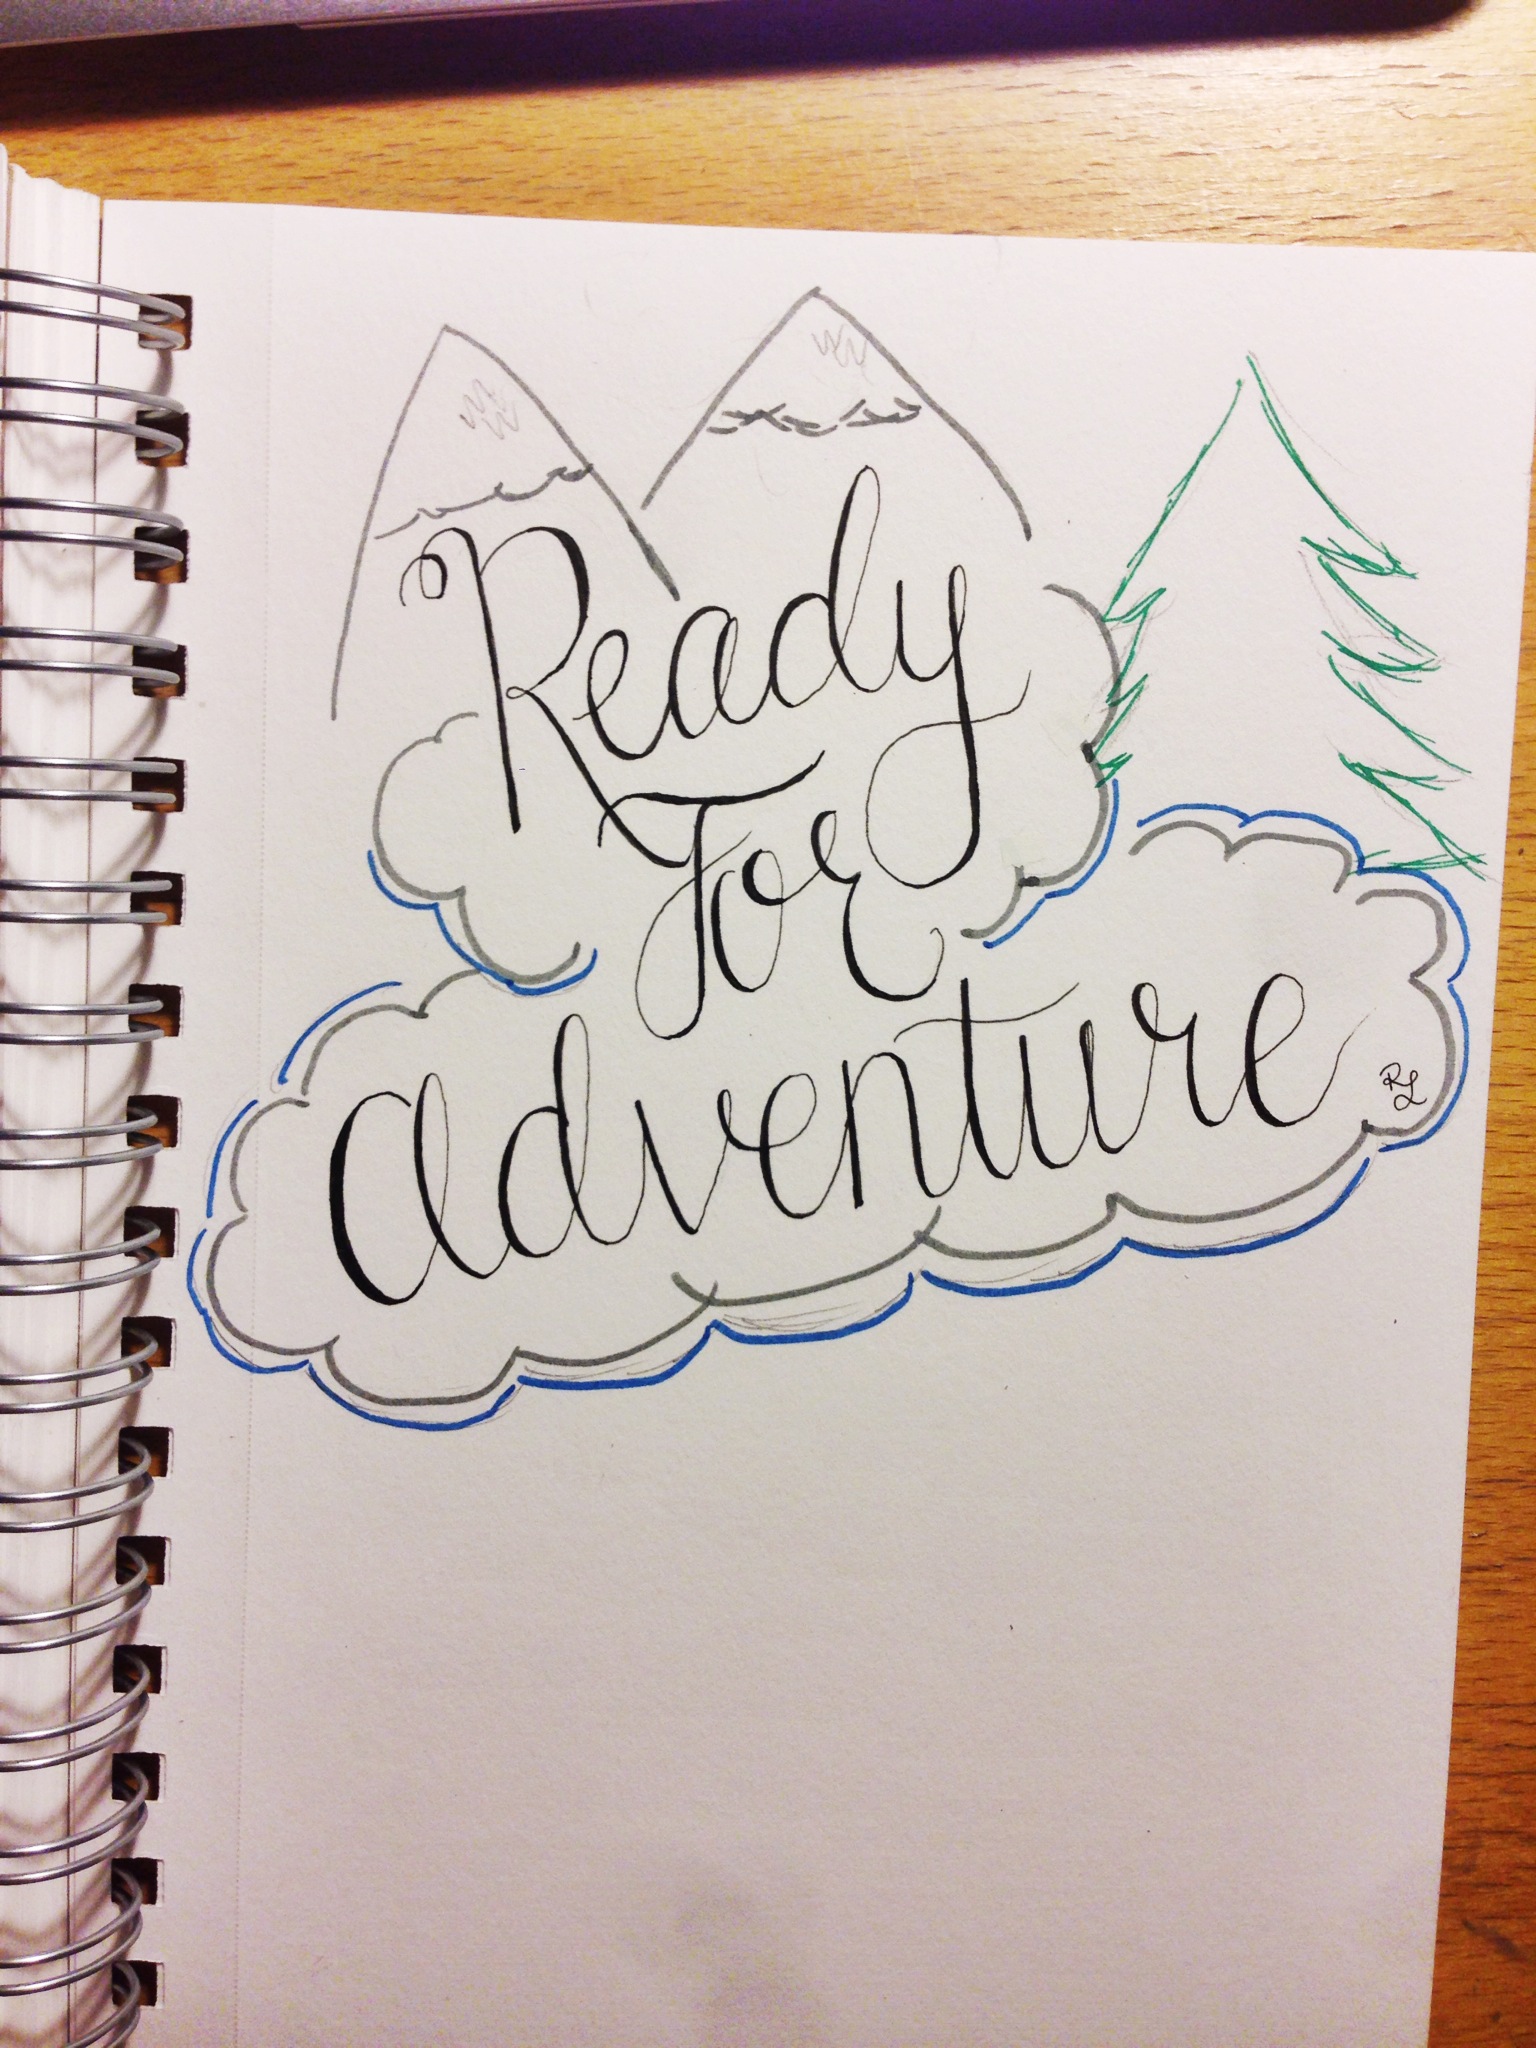 Ready
For
adventure
RL